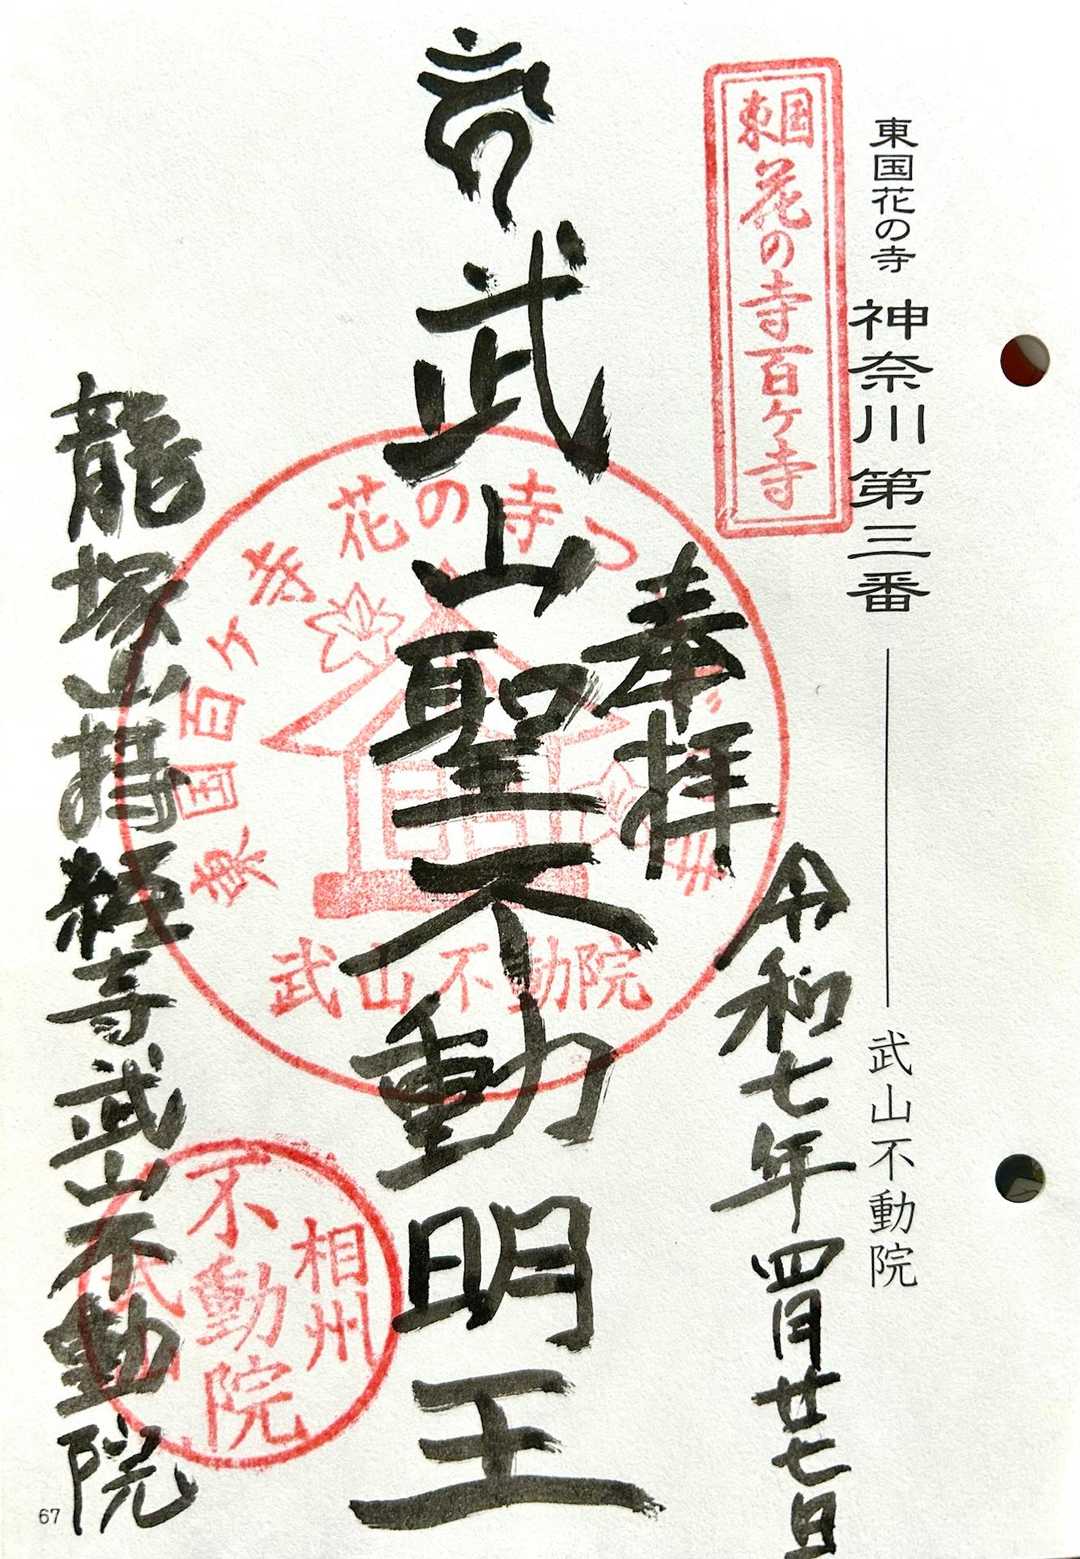 東国花の寺 神奈川第三番 武山不動院
東国花の寺百ヶ寺
奉拝
令和七年四月廿七日
武山聖不動明王
東国百ヶ寺花の寺
武山不動院
龍塚山持経寺武山不動院
相州
不動院
67